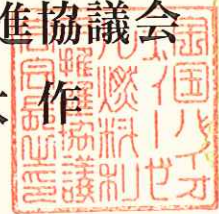 進協議会
作
全国バイオ
ディーゼ
ル燃料利
用推進協議
会会長之印